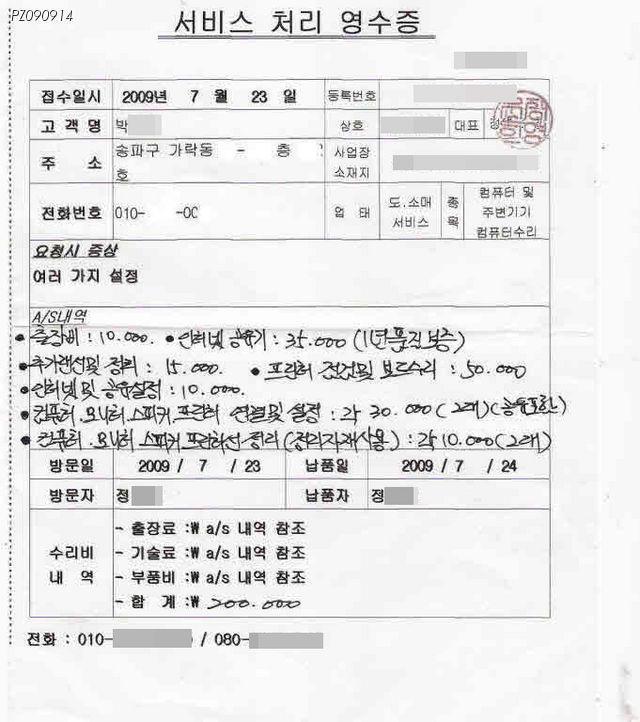 PZ090914
서비스 처리 영수증
접수일시 2009년 7 월 23 일 등록번호
고 객 명 박 상호 대표 정
주 소 송파구 가락동 - 층 호 사업장 소재지
전화번호 010- -00 업 태 도.소매 서비스 종목 컴퓨터 및 주변기기 컴퓨터수리
요청시 증상
여러 가지 설정
A/S내역
• 출장비 : 10.000. • 인터넷 공유기 : 35.000 (1년 품질보증)
• 추가랜선및 정리 : 15.000. • 프린터 점검및 보드수리 : 50.000
• 인터넷 및 공유설정 : 10.000.
• 컴퓨터. 모니터 스피커. 프린터 연결및 설정 : 각 30.000 (2대) (공유포함)
• 컴퓨터. 모니터 스피커 프린터선 정리 (정리자재사용) : 각 10.000 (2대)
방문일 2009 / 7 / 23 납품일 2009 / 7 / 24
방문자 정 납품자 정
수리비 내 역
- 출장료 :₩ a/s 내역 참조
- 기술료 :₩ a/s 내역 참조
- 부품비 :₩ a/s 내역 참조
- 합 계 :₩ 200.000
전화 : 010- / 080-